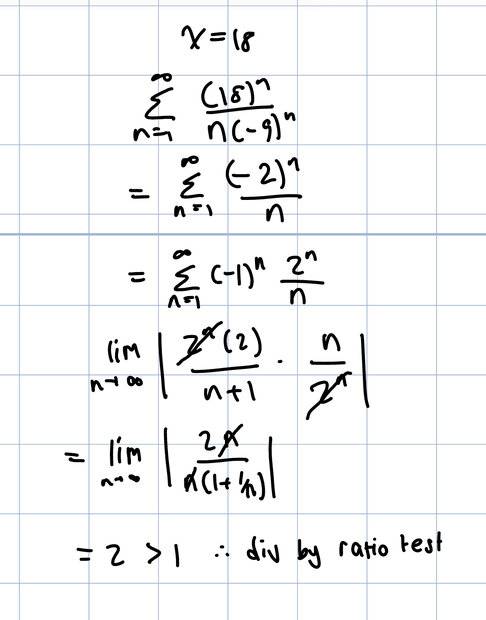 x = 18
∞ Σ n=1 (18)^n / n(-9)^n
= ∞ Σ n=1 (-2)^n / n
= ∞ Σ n=1 (-1)^n 2^n / n
lim n→∞ | 2^n (2) / n+1 · n / 2^n |
= lim n→∞ | 2n / n(1+1/n) |
= 2 > 1 ∴ div by ratio test